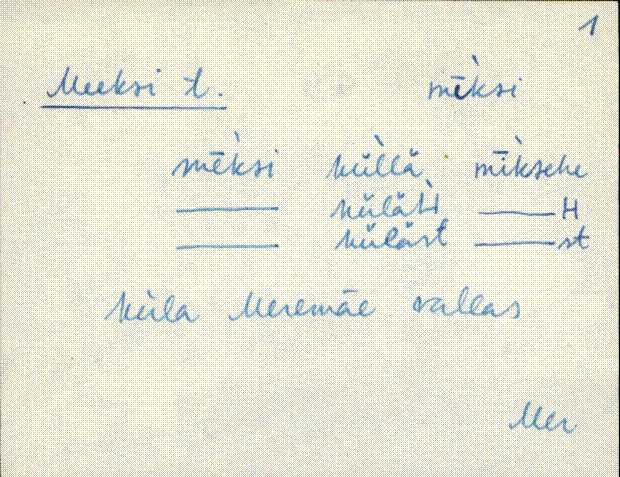 1
Meeksi t. mḕksi
mḕksi kǜllä mī̀ksehe
—— küläh —— H
—— küläst —— st
küla Meremäe vallas
Mer